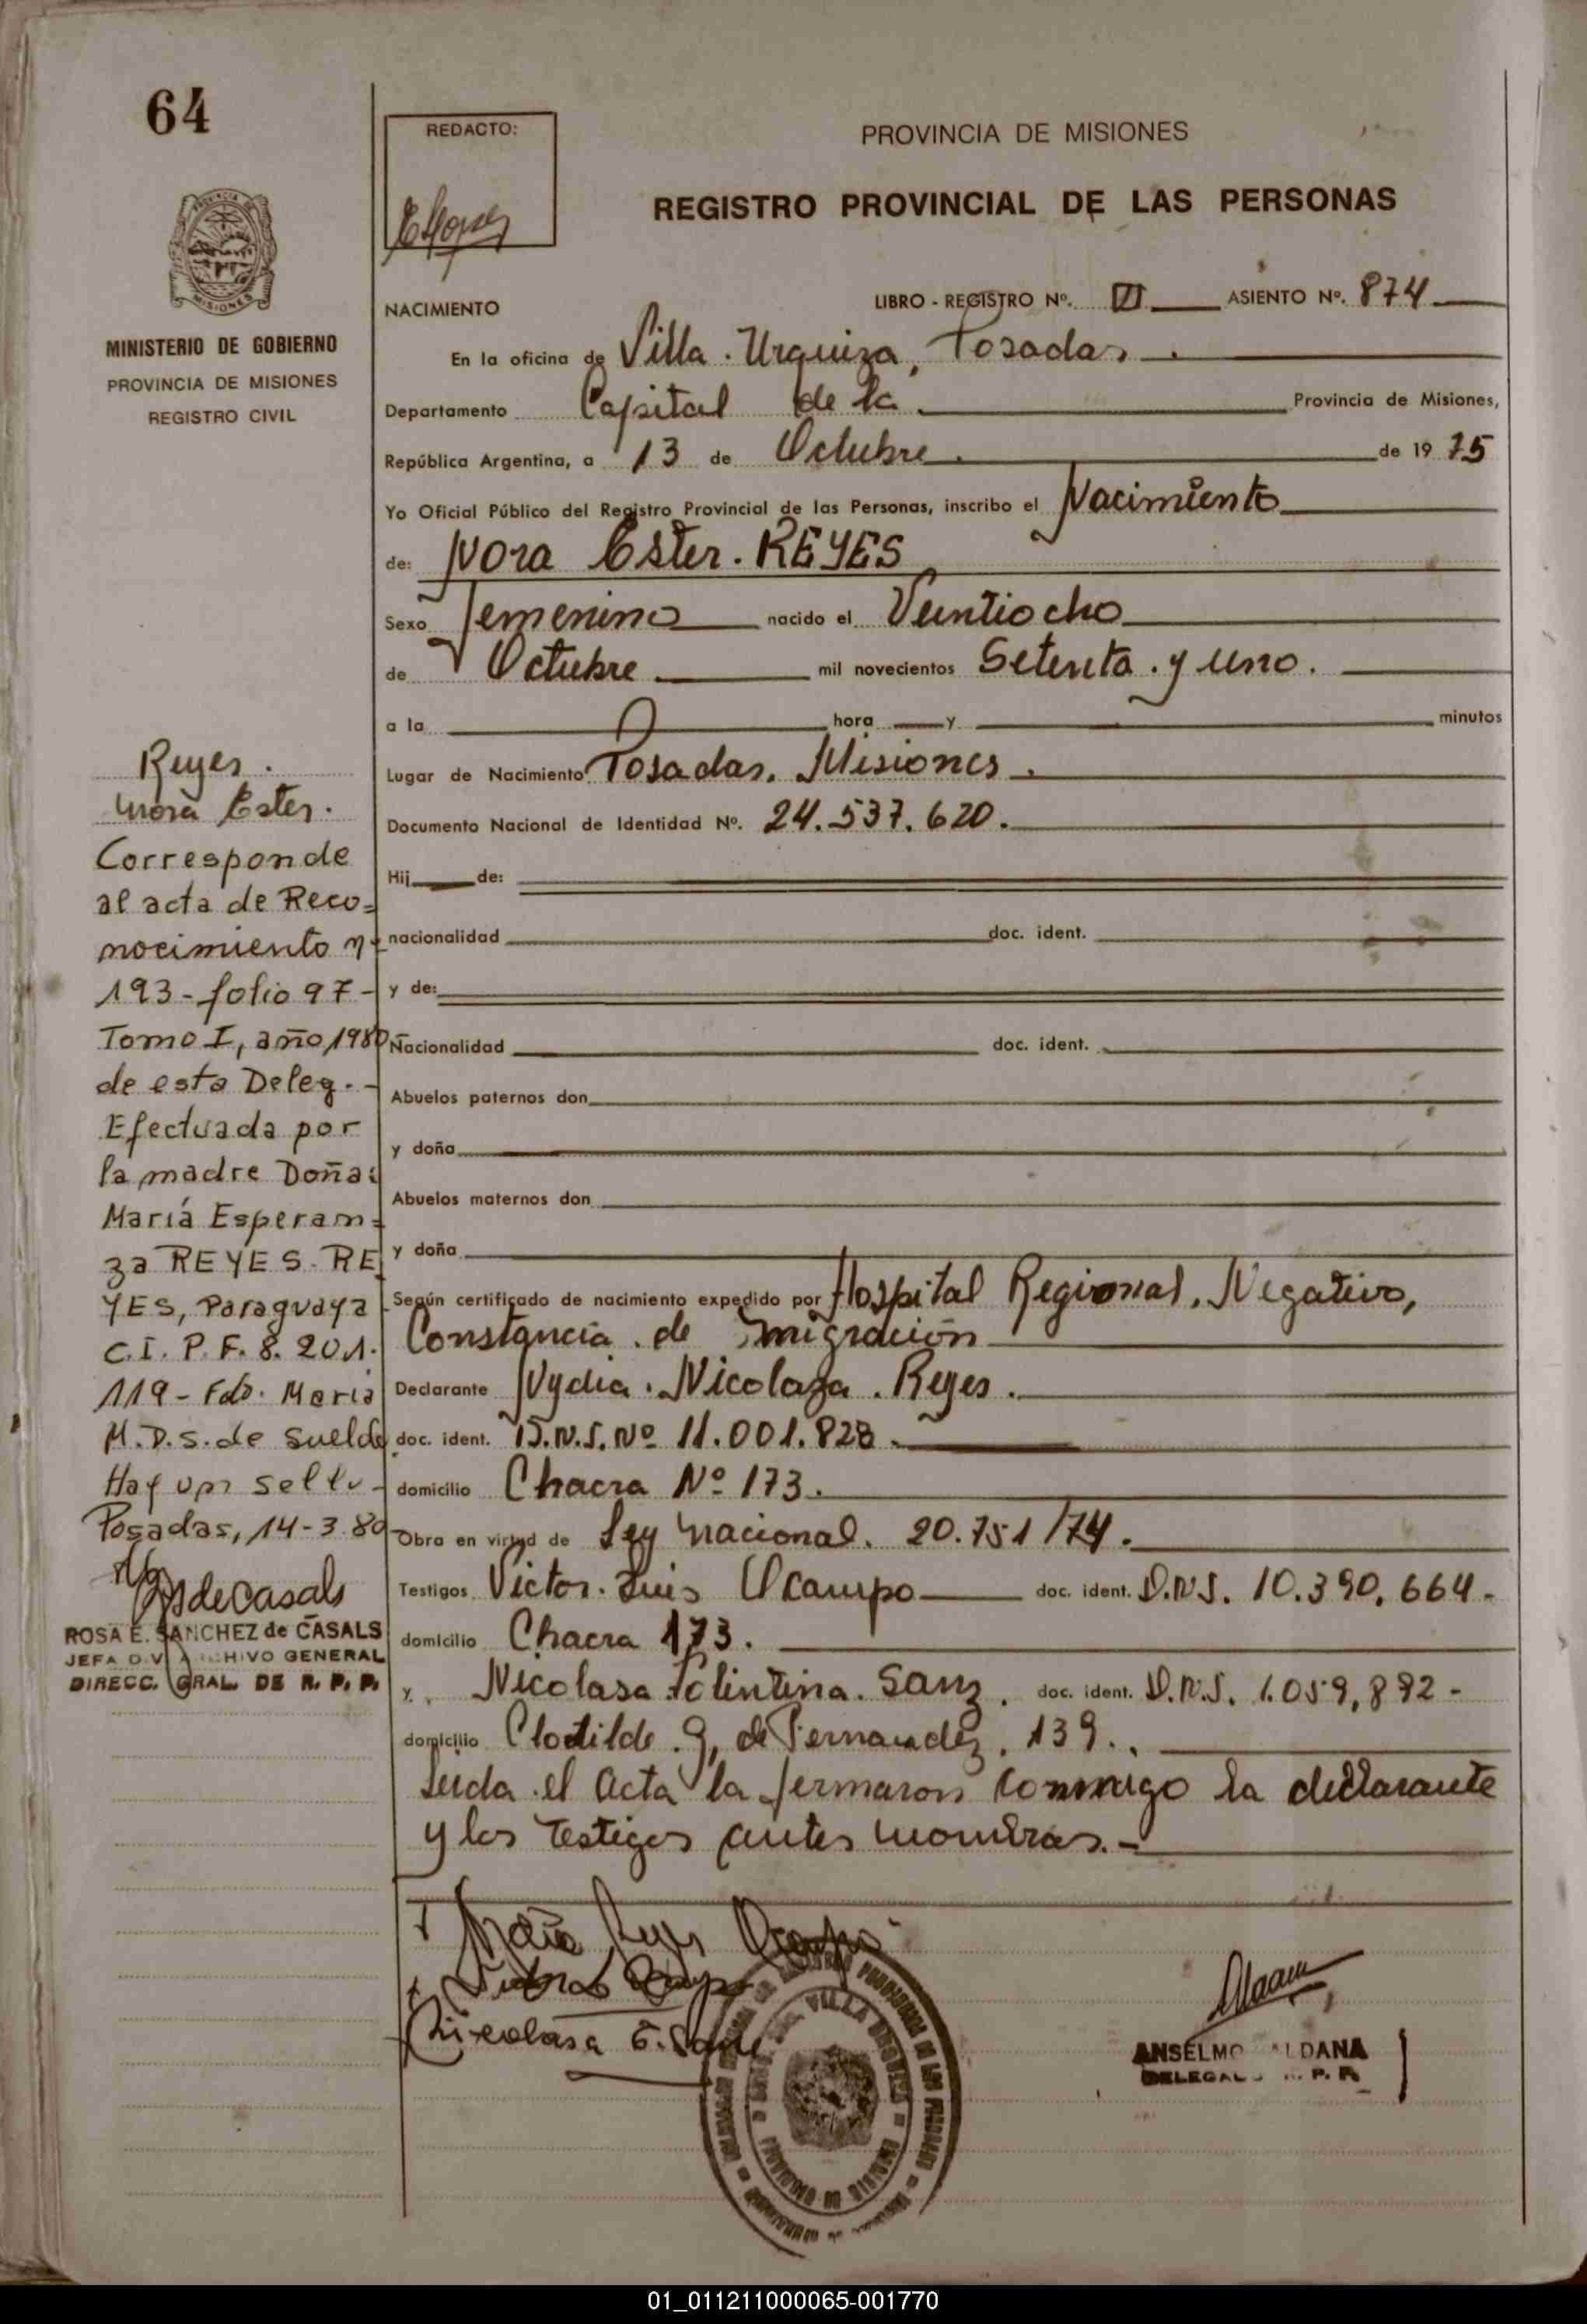 64
REDACTO:
PROVINCIA DE MISIONES
REGISTRO PROVINCIAL DE LAS PERSONAS
MISIONES
MINISTERIO DE GOBIERNO
PROVINCIA DE MISIONES
REGISTRO CIVIL
NACIMIENTO
LIBRO - REGISTRO Nº. VI ASIENTO Nº. 874
En la oficina de Villa. Urquiza, Posadas.
Departamento Capital de la Provincia de Misiones,
República Argentina, a 13 de Octubre. de 19 75
Yo Oficial Público del Registro Provincial de las Personas, inscribo el Nacimiento
de: Nora Ester. REYES
Sexo Femenino nacido el Veintiocho
de Octubre mil novecientos Setenta. y uno.
a la hora y minutos
Lugar de Nacimiento Posadas. Misiones.
Documento Nacional de Identidad Nº. 24.537.620.
Hij de:
nacionalidad doc. ident.
y de:
Nacionalidad doc. ident.
Abuelos paternos don
y doña
Abuelos maternos don
y doña
Según certificado de nacimiento expedido por Hospital Regional. Negativo,
Constancia. de Imigración
Declarante Nydia. Nicolaza. Reyes.
doc. ident. D.N.I. Nº 11.001.828.
domicilio Chacra Nº 173.
Obra en virtud de Ley Nacional. 20.751/74.
Testigos Victor. Luis Ocampo doc. ident. D.N.I. 10.390.664-
domicilio Chacra 173.
y Nicolasa Tolintina. Sanz. doc. ident. D.N.I. 1.059,892-
domicilio Clotilde. G, de Fernandez. 139.
Leida el acta la fermaron conmigo la declarante
y los testigos antes nombras.-
Reyes.
Nora Ester.
Corresponde
al acta de Reco=
nocimiento nº
193-folio 97-
Tomo I, año 1980
de esta Deleg.-
Efectuada por
la madre Doña:
María Esperan=
za REYES-RE
YES, Paraguaya
C.I. P.F. 8.201.
119-Fdo. María
M.D.S. de Suelde
Hay un sello-
Posadas, 14-3-80
ROSA E. SANCHEZ de CASALS
JEFA DIV ARCHIVO GENERAL
DIRECC. GRAL. DE R. P. P.
Nicolasa
VILLA URQUIZA
ANSELMO ALDANA
DELEGADO R. P. P.
01_011211000065-001770